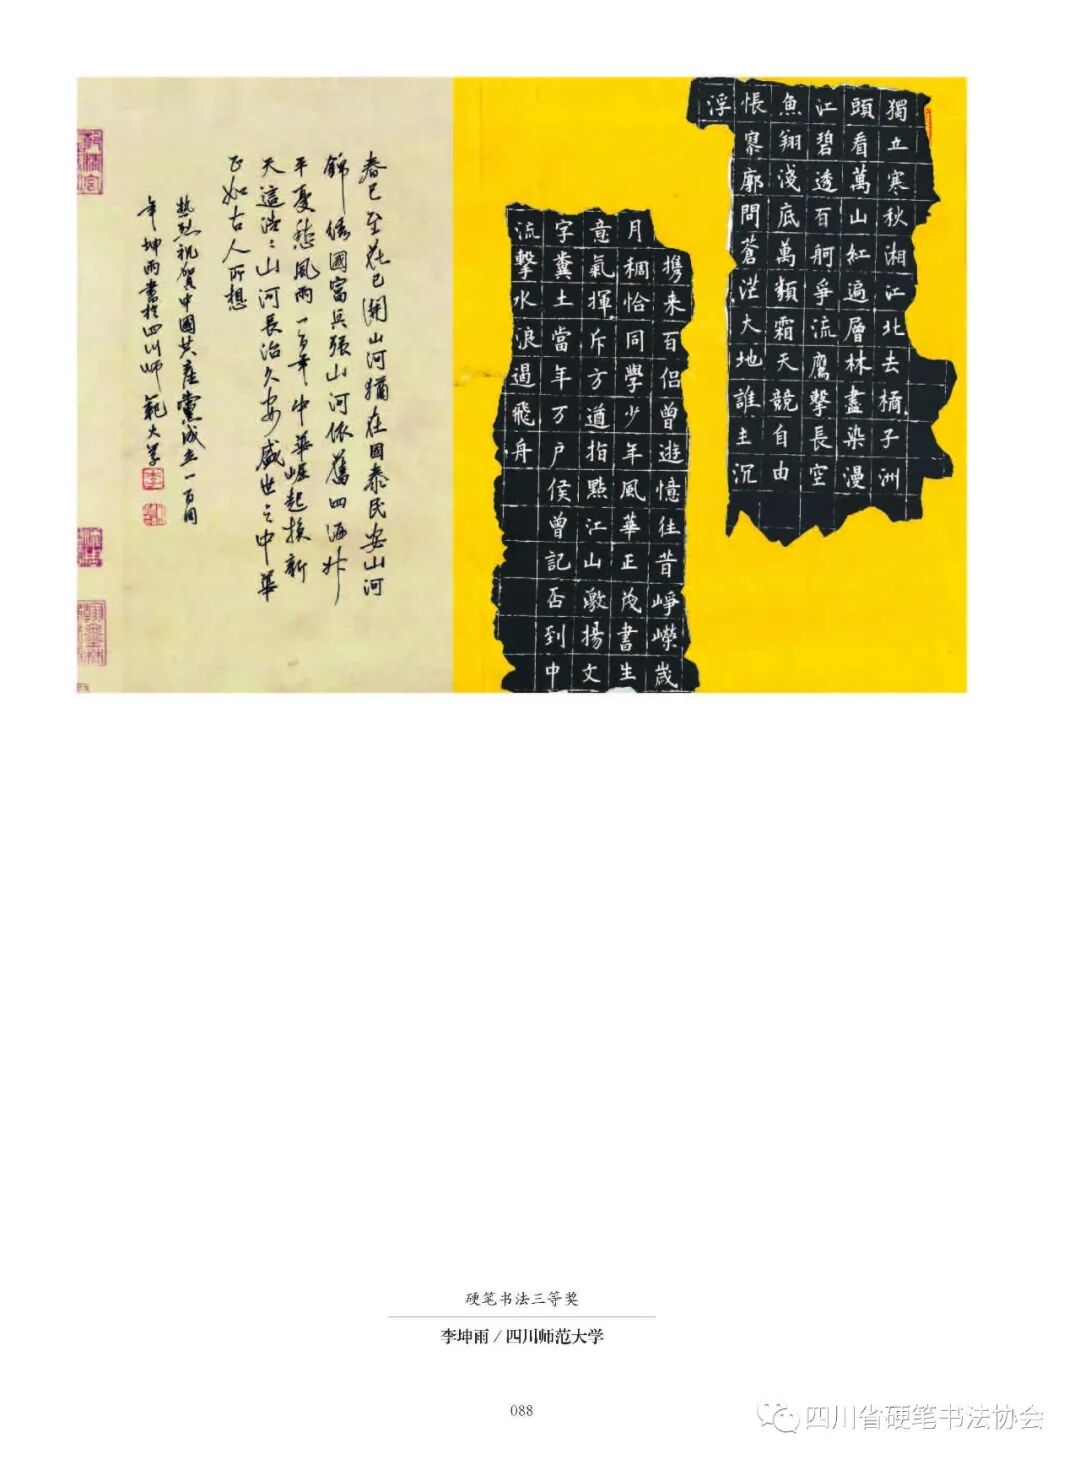 獨立寒秋湘江北去橘子洲
頭看萬山紅遍層林盡染漫
江碧透百舸爭流鷹擊長空
魚翔淺底萬類霜天競自由
悵寥廓問蒼茫大地誰主沉
浮
携来百侣曾遊憶往昔崢嶸歲
月稠恰同學少年風華正茂書生
意氣揮斥方遒指點江山激揚文
字糞土當年万戶侯曾記否到中
流擊水浪遏飛舟
春已至花已開山河猶在國泰民安山河
錦綉國富兵強山河依舊四海升
平憂愁風雨一百年中華崛起換新
天這浩〻山河長治久安盛世之中華
正如古人所想
熱烈祝賀中國共產黨成立一百周
年坤雨書於四川師範大學
硬笔书法三等奖
李坤雨/四川师范大学
088
四川省硬笔书法协会